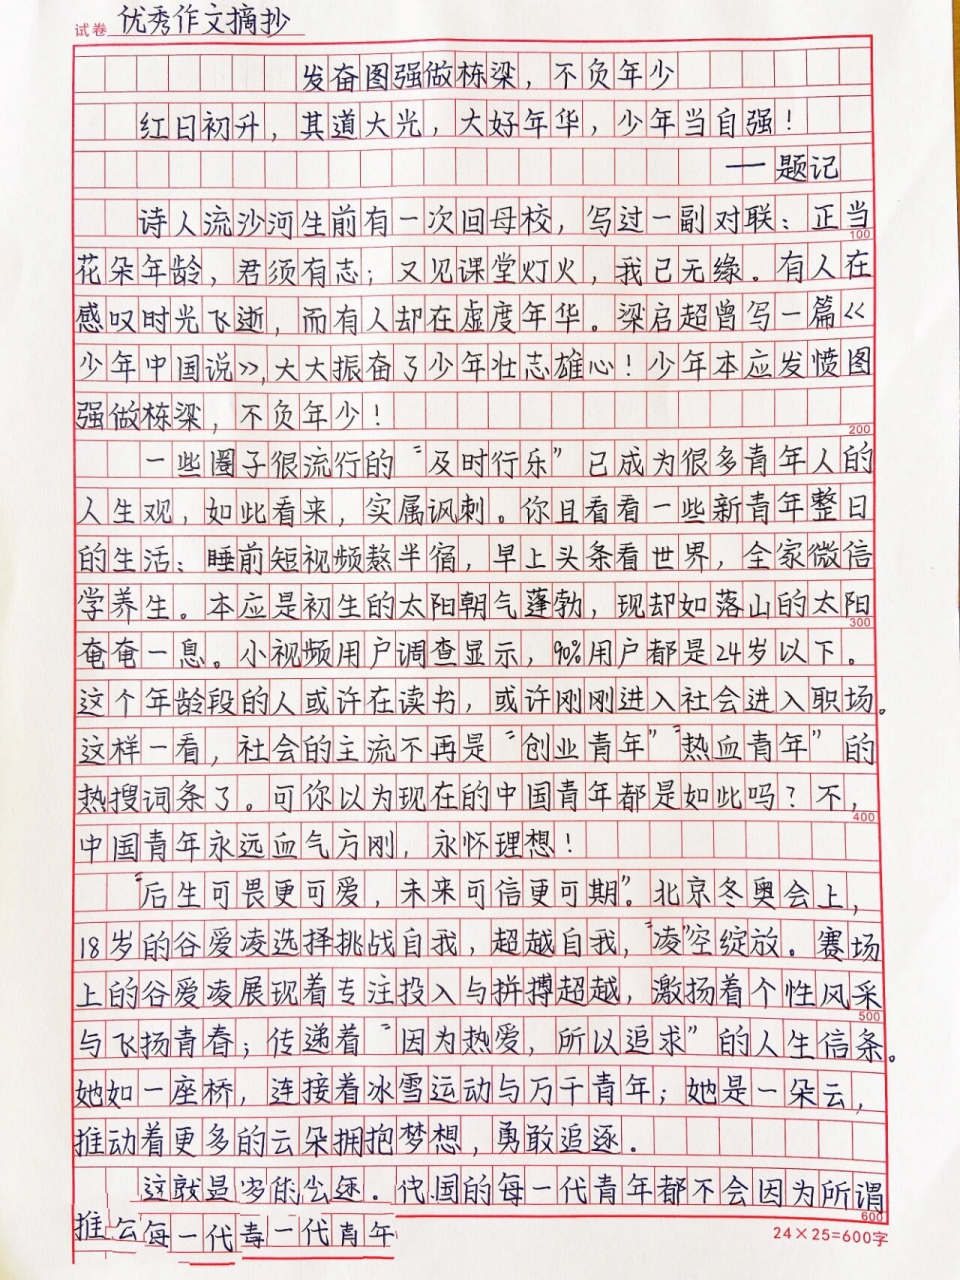 试卷 优秀作文摘抄
发奋图强做栋梁，不负年少
红日初升，其道大光，大好年华，少年当自强！
——题记
诗人流沙河生前有一次回母校，写过一副对联：正当
100
花朵年龄，君须有志；又见课堂灯火，我已无缘。有人在
感叹时光飞逝，而有人却在虚度年华。梁启超曾写一篇《
少年中国说》，大大振奋了少年壮志雄心！少年本应发愤图
强做栋梁，不负年少！
200
一些圈子很流行的“及时行乐”已成为很多青年人的
人生观，如此看来，实属讽刺。你且看看一些新青年整日
的生活：睡前短视频熬半宿，早上头条看世界，全家微信
学养生。本应是初生的太阳朝气蓬勃，现却如落山的太阳
300
奄奄一息。小视频用户调查显示，90%用户都是24岁以下。
这个年龄段的人或许在读书，或许刚刚进入社会进入职场。
这样一看，社会的主流不再是“创业青年”“热血青年”的
热搜词条了。可你以为现在的中国青年都是如此吗？不，
400
中国青年永远血气方刚，永怀理想！
“后生可畏更可爱，未来可信更可期”。北京冬奥会上，
18岁的谷爱凌选择挑战自我，超越自我，“凌”空绽放。赛场
上的谷爱凌展现着专注投入与拼搏超越，激扬着个性风采
500
与飞扬青春；传递着“因为热爱，所以追求”的人生信条。
她如一座桥，连接着冰雪运动与万千青年；她是一朵云，
推动着更多的云朵拥抱梦想，勇敢追逐。
这就是 。 国的每一代青年都不会因为所谓
600
推 每一代 一代青年
24×25=600字